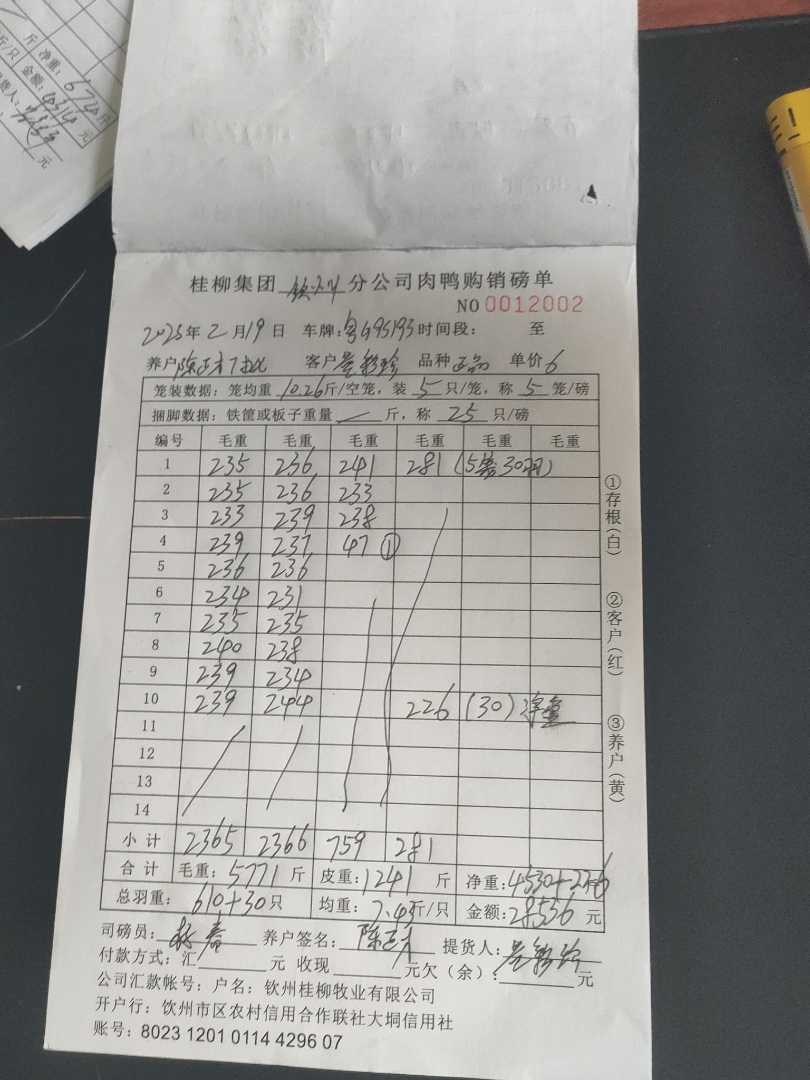 斤 净重：674斤
斤/只 金额：4314元
货人：
元
桂柳集团 钦州 分公司肉鸭购销磅单
NO 0012002
2025年2月19日 车牌：粤G95193 时间段： 至
养户 陈正 客户 品种 正品 单价 6
笼装数据：笼均重 10.26 斤/空笼，装 5 只/笼，称 5 笼/磅
捆脚数据：铁筐或板子重量 斤，称 25 只/磅
编号 毛重 毛重 毛重 毛重 毛重 毛重
1 235 236 241 281 (5笼30羽)
2 235 236 233
3 233 239 238
4 239 237 47 ①
5 236 236
6 234 231
7 235 235
8 240 238
9 239 234
10 239 244 226 (30) 净重
11
12
13
14
小计 2365 2366 759 281
合计 毛重：5771 斤 皮重：1241 斤 净重：4530+226
总羽重： 610+30 只 均重：7.43 斤/只 金额：28536 元
司磅员： 春 养户签名：陈正 提货人：
付款方式：汇 元 收现 元欠（余）： 元
公司汇款帐号：户名：钦州桂柳牧业有限公司
开户行：饮州市区农村信用合作联社大垌信用社
账号：8023 1201 0114 4296 07
①存根(白)
②客户(红)
③养户(黄)